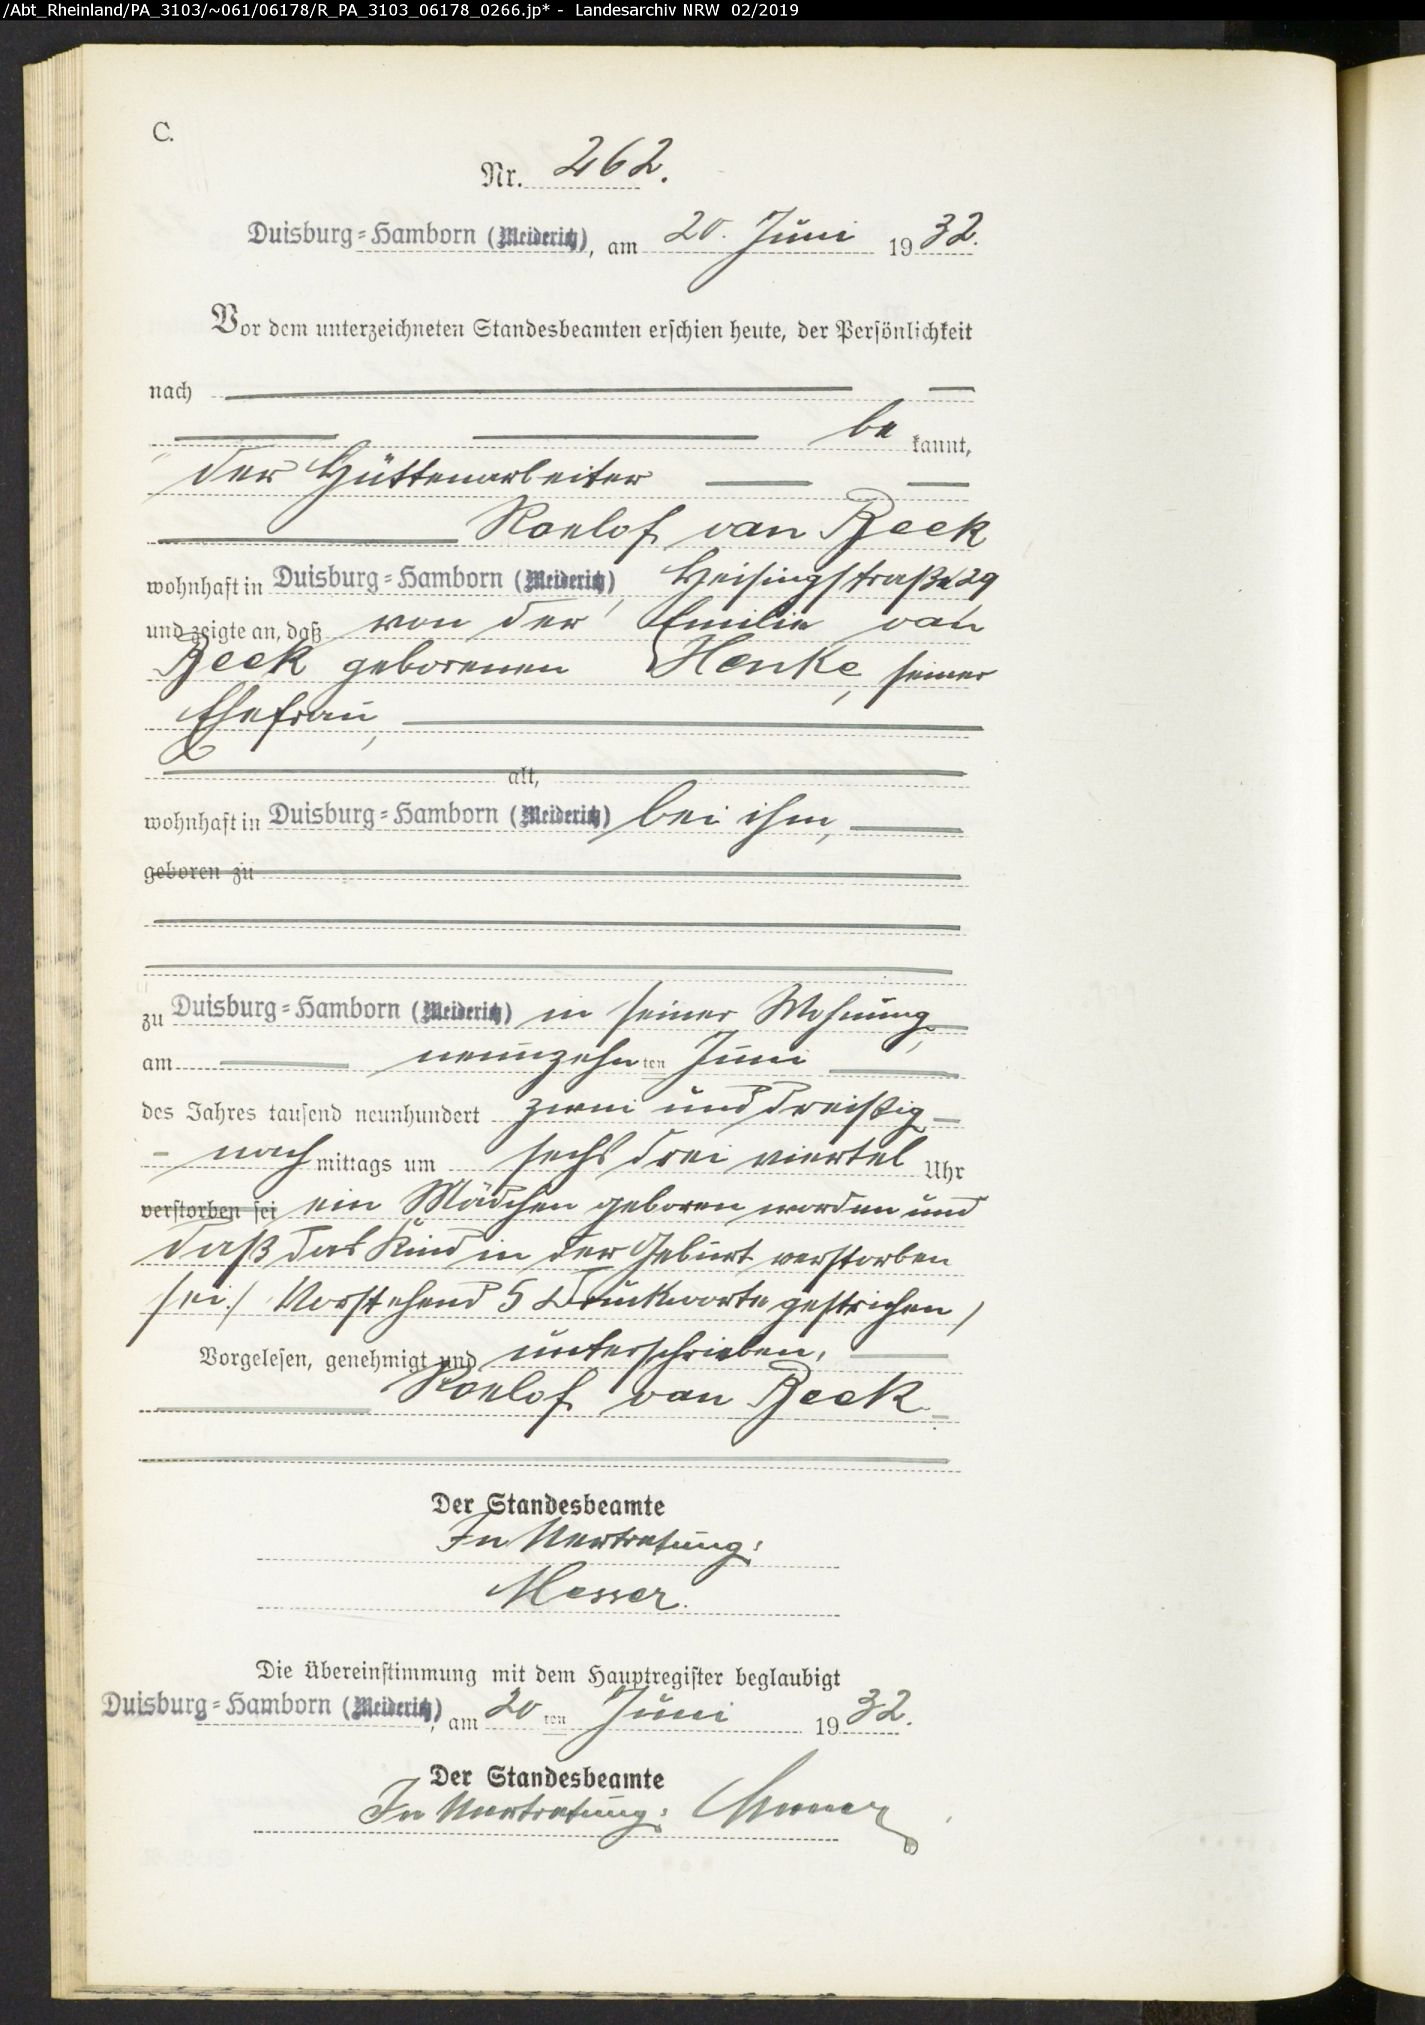 /Abt_Rheinland/PA_3103/~061/06178/R_PA_3103_06178_0266.jp* - Landesarchiv NRW 02/2019
C.
Nr. 262.
Duisburg=Hamborn (Meiderich), am 20. Juni 1932.
Vor dem unterzeichneten Standesbeamten erschien heute, der Persönlichkeit
nach
be kannt,
der Hüttenarbeiter
Roelof van Beek
wohnhaft in Duisburg=Hamborn (Meiderich), Heisingstraße 29
und zeigte an, daß von der Emilie van
Beek geborenen Henke, seiner
Ehefrau,
alt,
wohnhaft in Duisburg=Hamborn (Meiderich) bei ihm,
geboren zu
zu Duisburg=Hamborn (Meiderich) in seiner Wohnung,
am neunzehn ten Juni
des Jahres tausend neunhundert zwei und dreißig
nach mittags um sechs drei viertel Uhr
verstorben sei ein Mädchen geboren worden und
daß das Kind in der Geburt verstorben
sei. (Vorstehend 5 Druckworte gestrichen)
Vorgelesen, genehmigt und unterschrieben.
Roelof van Beek.
Der Standesbeamte
In Vertretung:
Messer.
Die Übereinstimmung mit dem Hauptregister beglaubigt
Duisburg=Hamborn (Meiderich), am 20 ten Juni 1932.
Der Standesbeamte
In Vertretung: